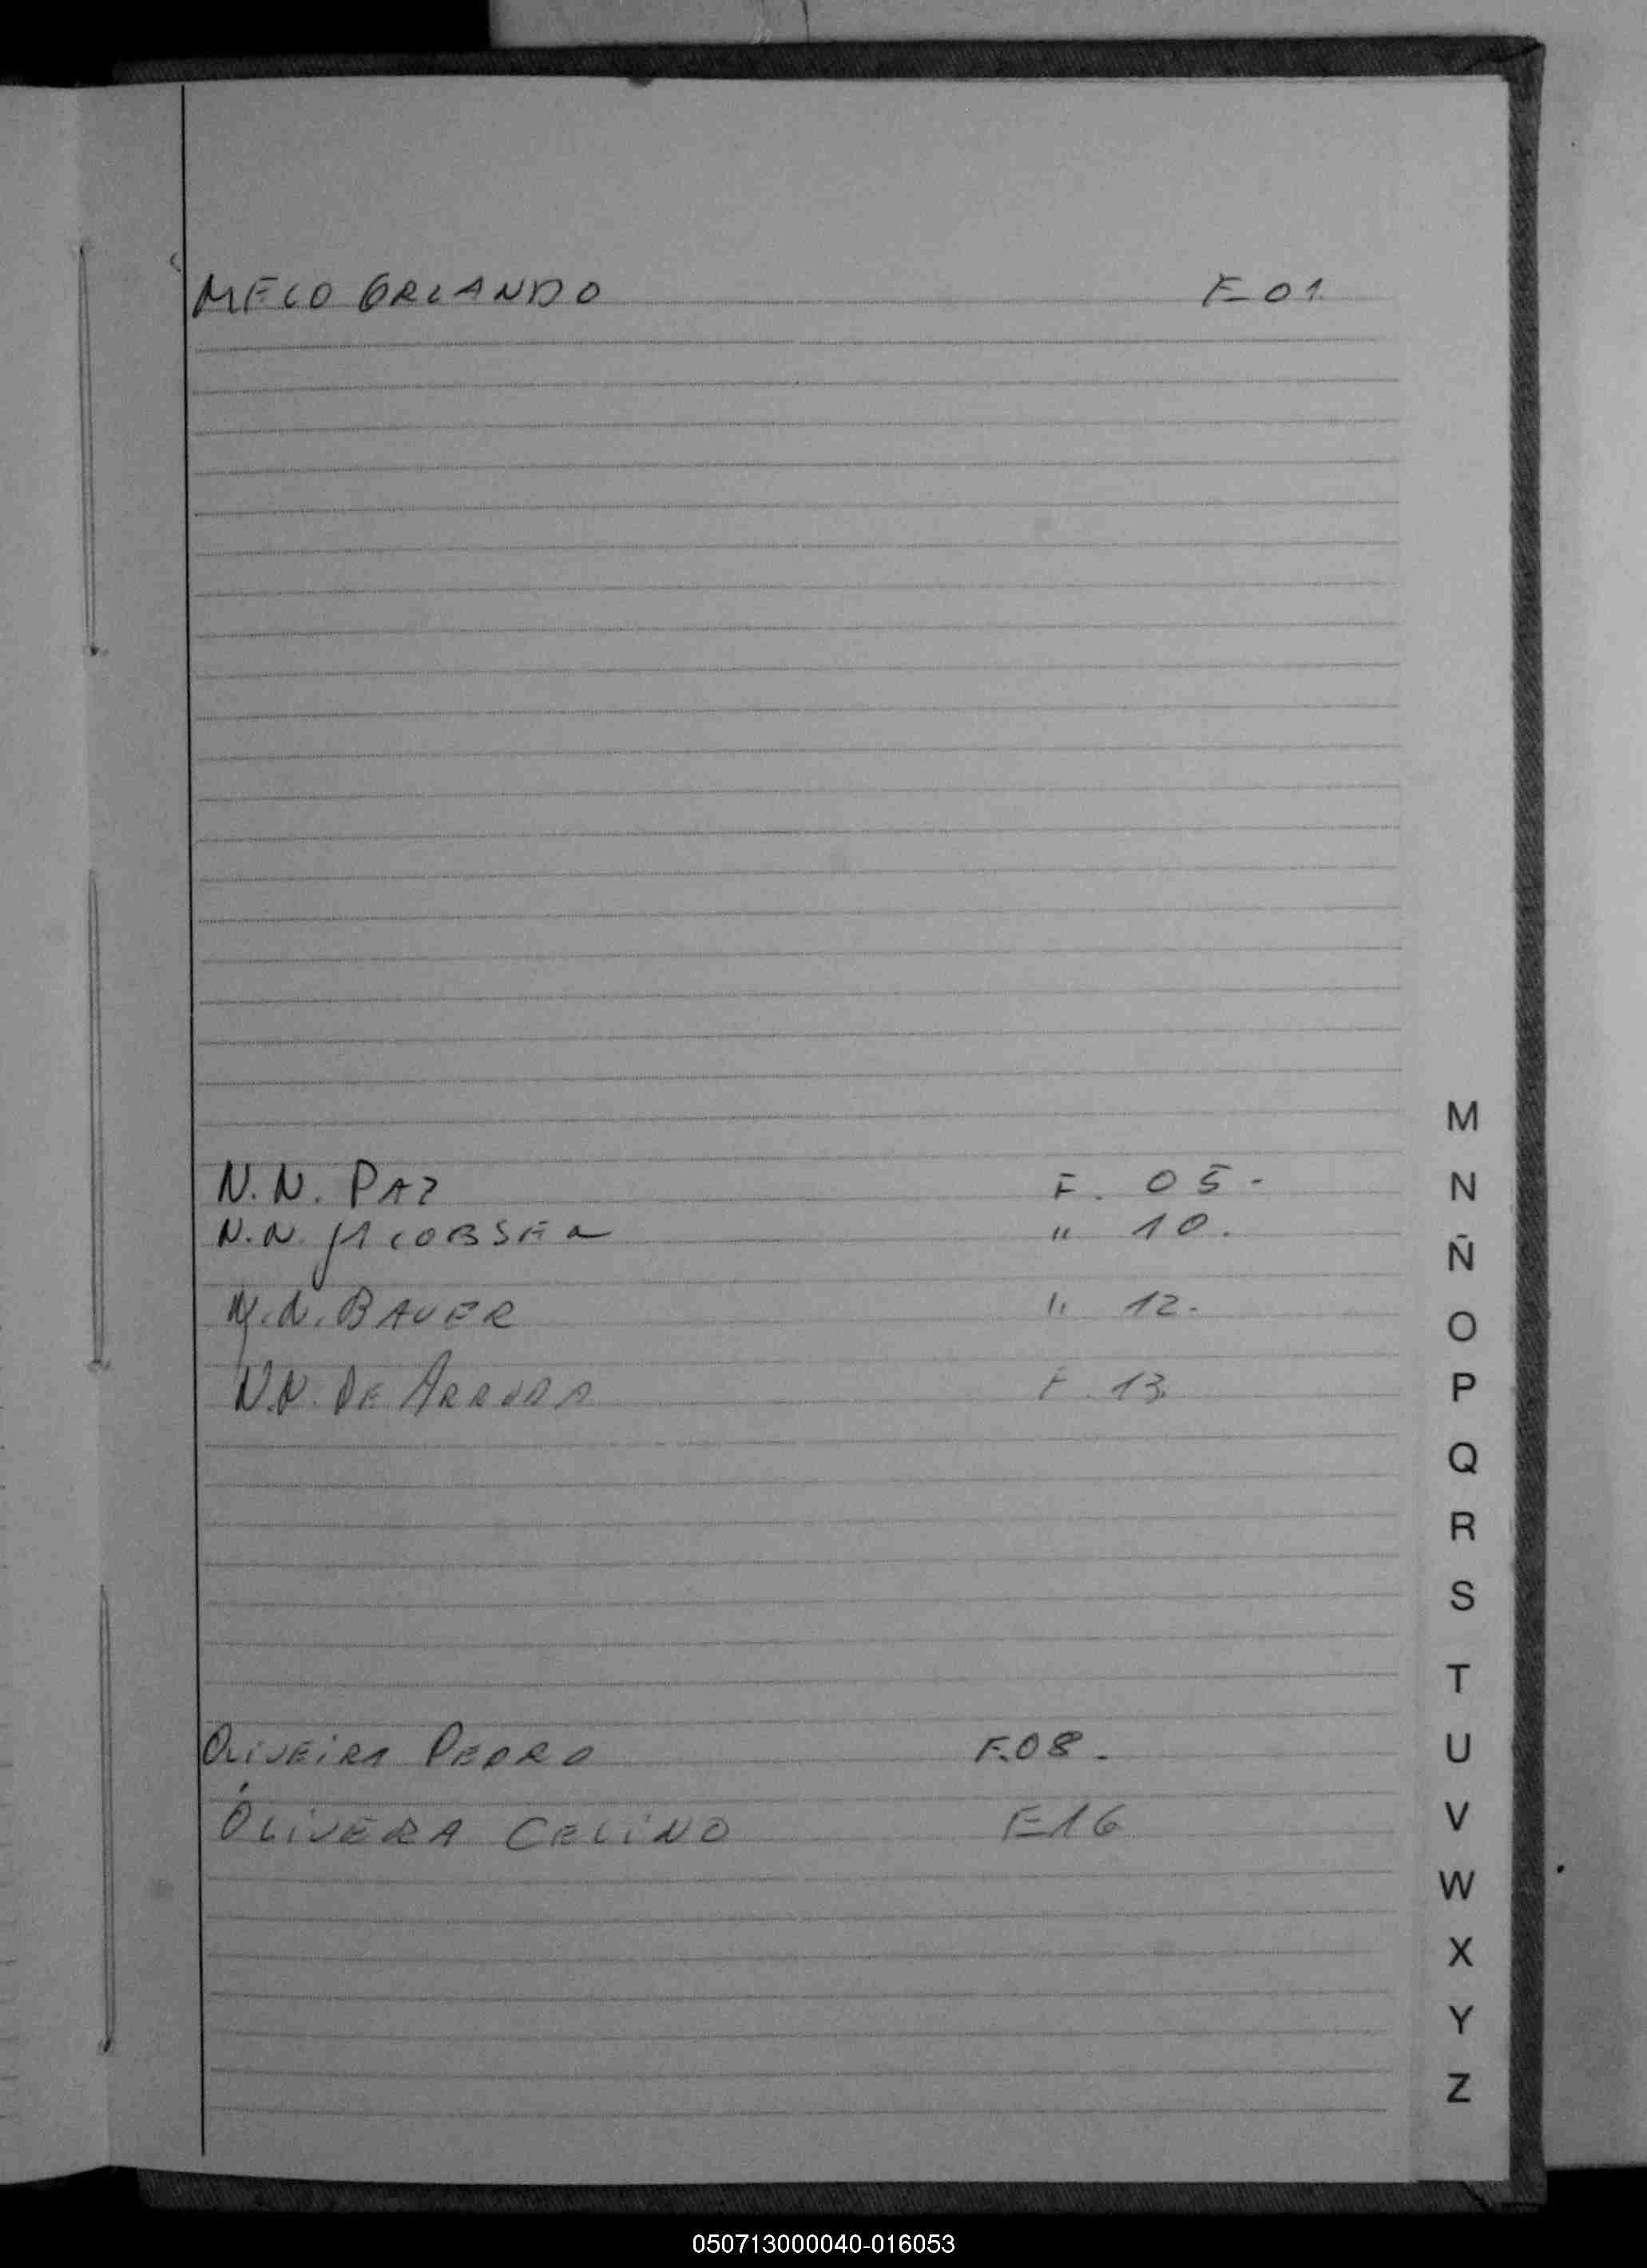 MELO ORLANDO F-01.
N.N. PAZ F. 05-
N.N. JACOBSEN " 10.
N.N. BAUER " 12-
N.N. DE ARRUDA F. 13.
OLiVEiRA PEDRO F.08-
OLiVERA CELiNO F-16
M
N
Ñ
O
P
Q
R
S
T
U
V
W
X
Y
Z
050713000040-016053